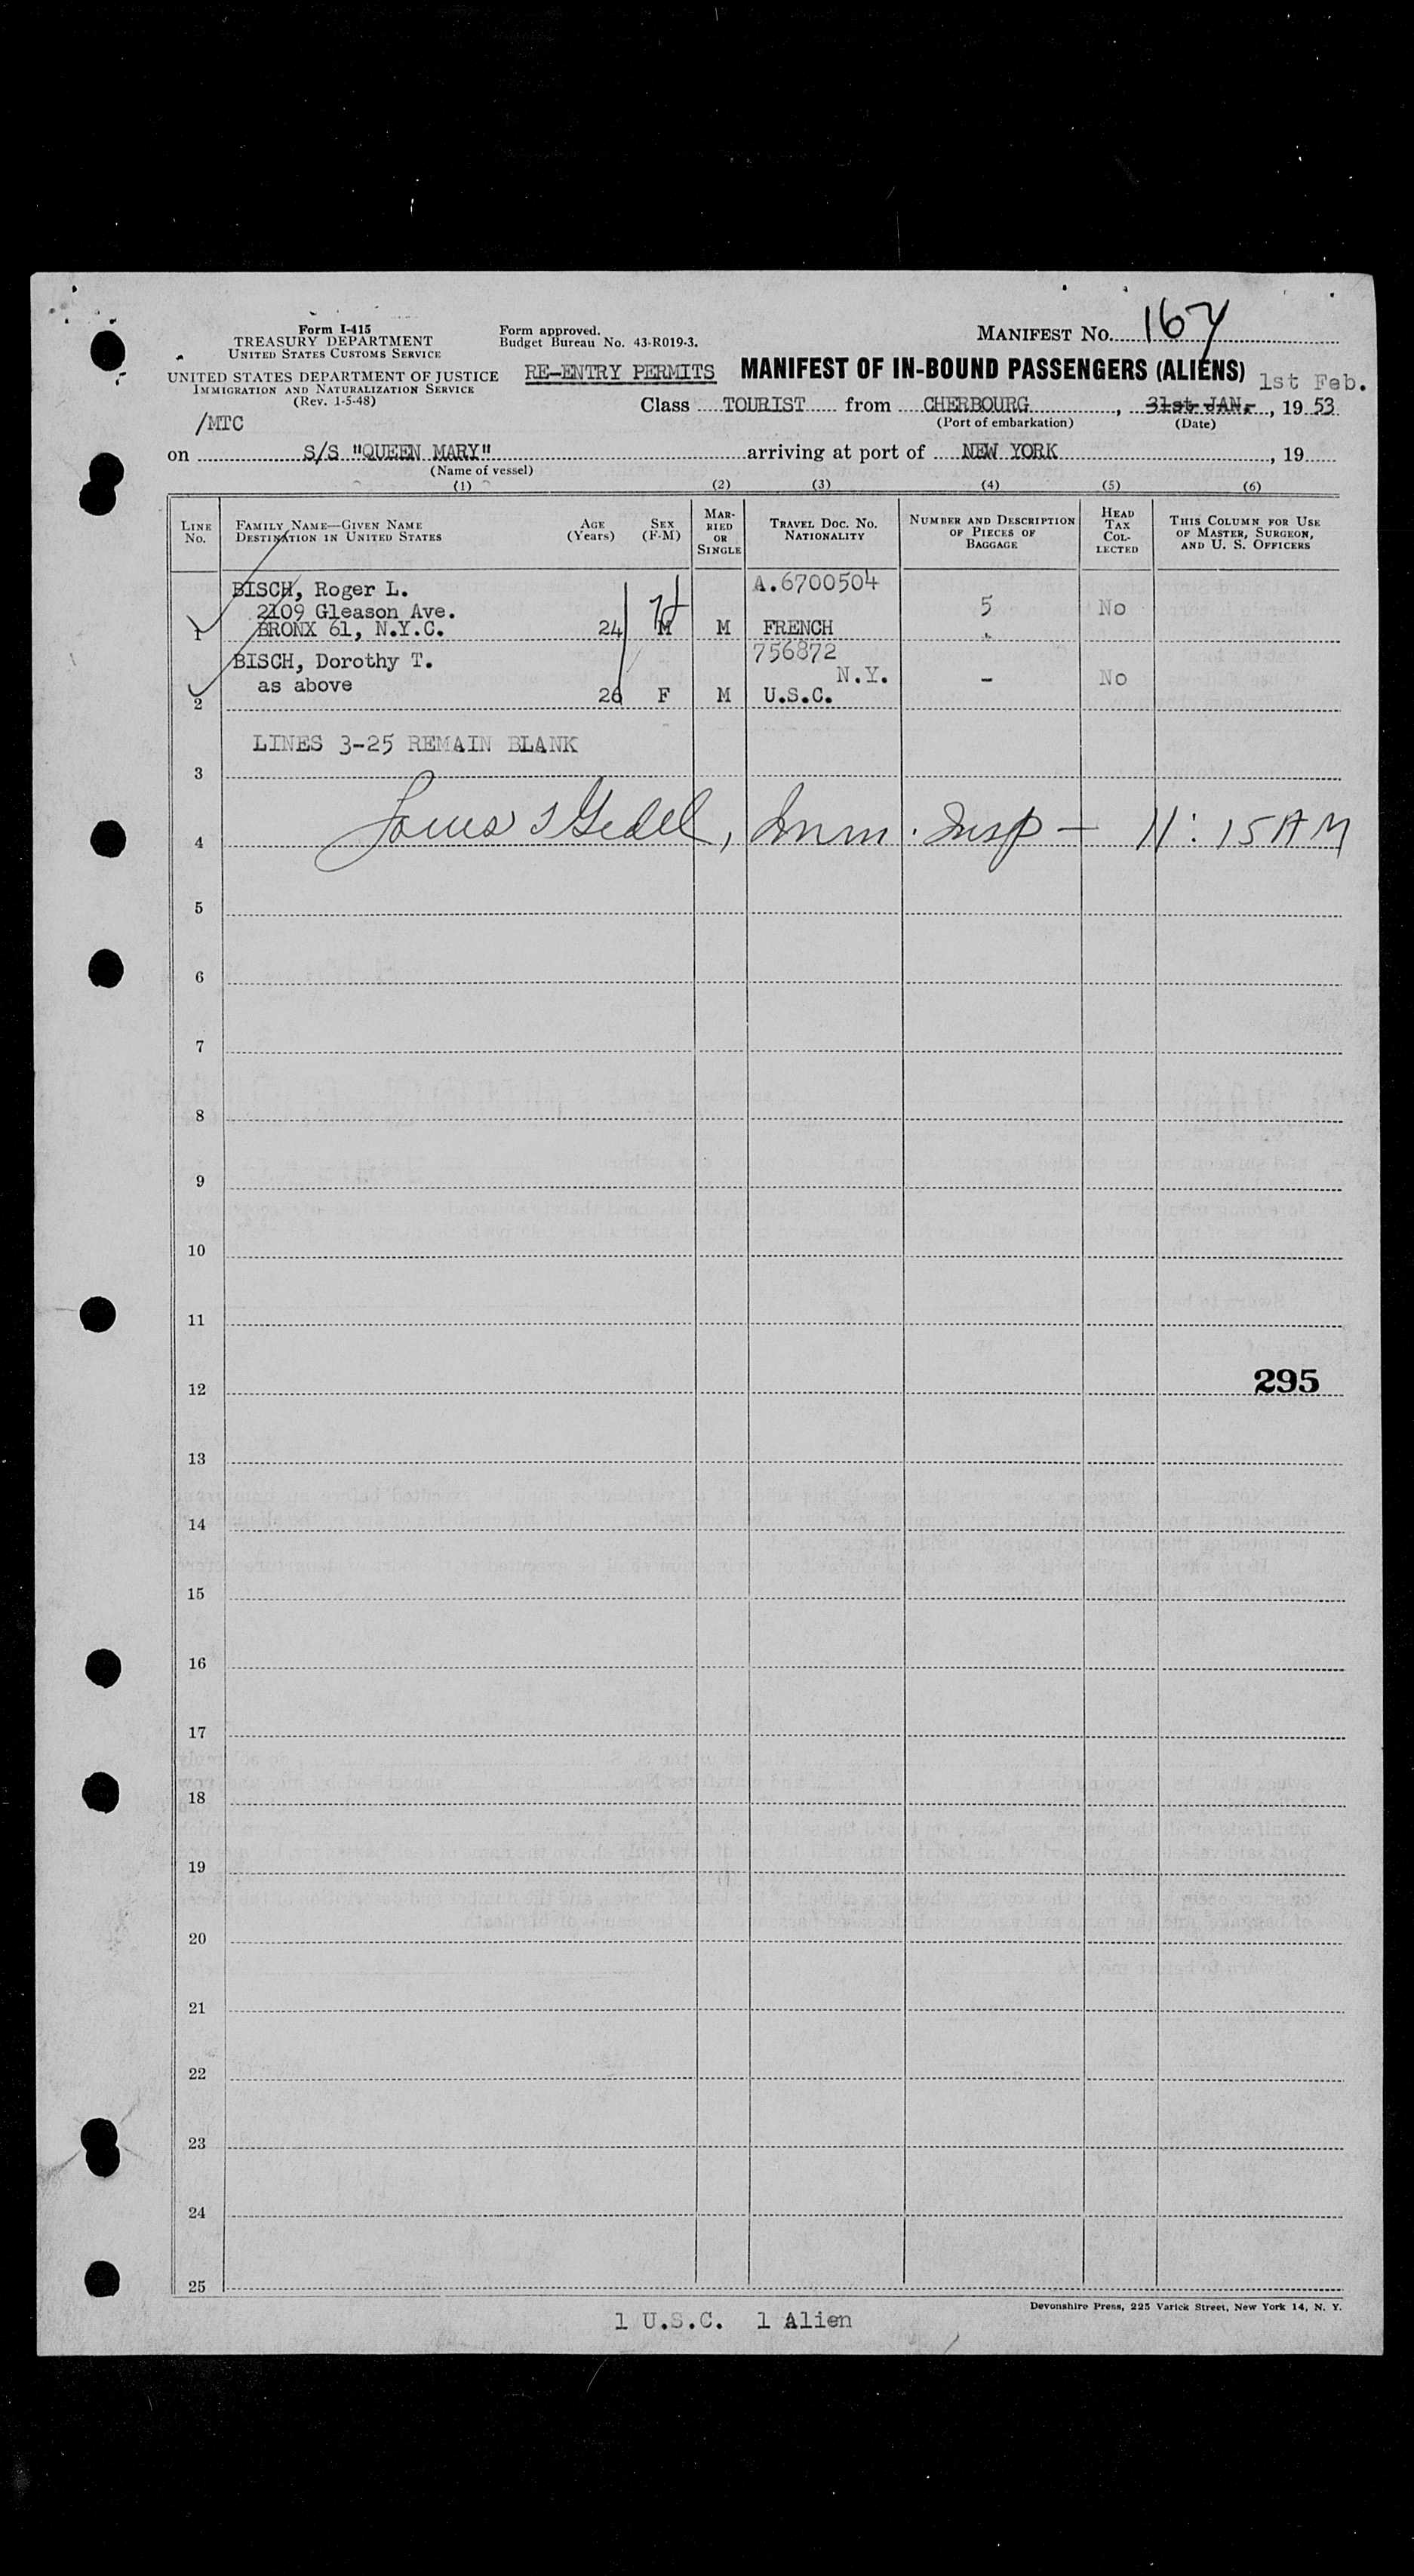 Form I-415
TREASURY DEPARTMENT
UNITED STATES CUSTOMS SERVICE
UNITED STATES DEPARTMENT OF JUSTICE
IMMIGRATION AND NATURALIZATION SERVICE
(Rev. 1-5-48)
/MTC
Form approved.
Budget Bureau No. 43-R019-3.
MANIFEST No. 167
RE-ENTRY PERMITS MANIFEST OF IN-BOUND PASSENGERS (ALIENS) 1st Feb.
Class TOURIST from CHERBOURG, 31st JAN., 19 53
(Port of embarkation) (Date)
on S/S "QUEEN MARY" arriving at port of NEW YORK, 19
(Name of vessel)
(1) (2) (3) (4) (5) (6)
LINE No.
FAMILY NAME—GIVEN NAME
DESTINATION IN UNITED STATES
AGE (Years)
SEX (F-M)
MARRIED OR SINGLE
TRAVEL DOC. NO. NATIONALITY
NUMBER AND DESCRIPTION OF PIECES OF BAGGAGE
HEAD TAX COLLECTED
THIS COLUMN FOR USE OF MASTER, SURGEON, AND U. S. OFFICERS
BISCH, Roger L. A.6700504
2109 Gleason Ave. 5 No
1 BRONX 61, N.Y.C. 24 M M FRENCH
BISCH, Dorothy T. 756872
as above N.Y. - No
2 26 F M U.S.C.
LINES 3-25 REMAIN BLANK
3
4 Imm. Insp — 11:15 AM
5
6
7
8
9
10
11
12 295
13
14
15
16
17
18
19
20
21
22
23
24
25
Devonshire Press, 225 Varick Street, New York 14, N. Y.
1 U.S.C. 1 Alien